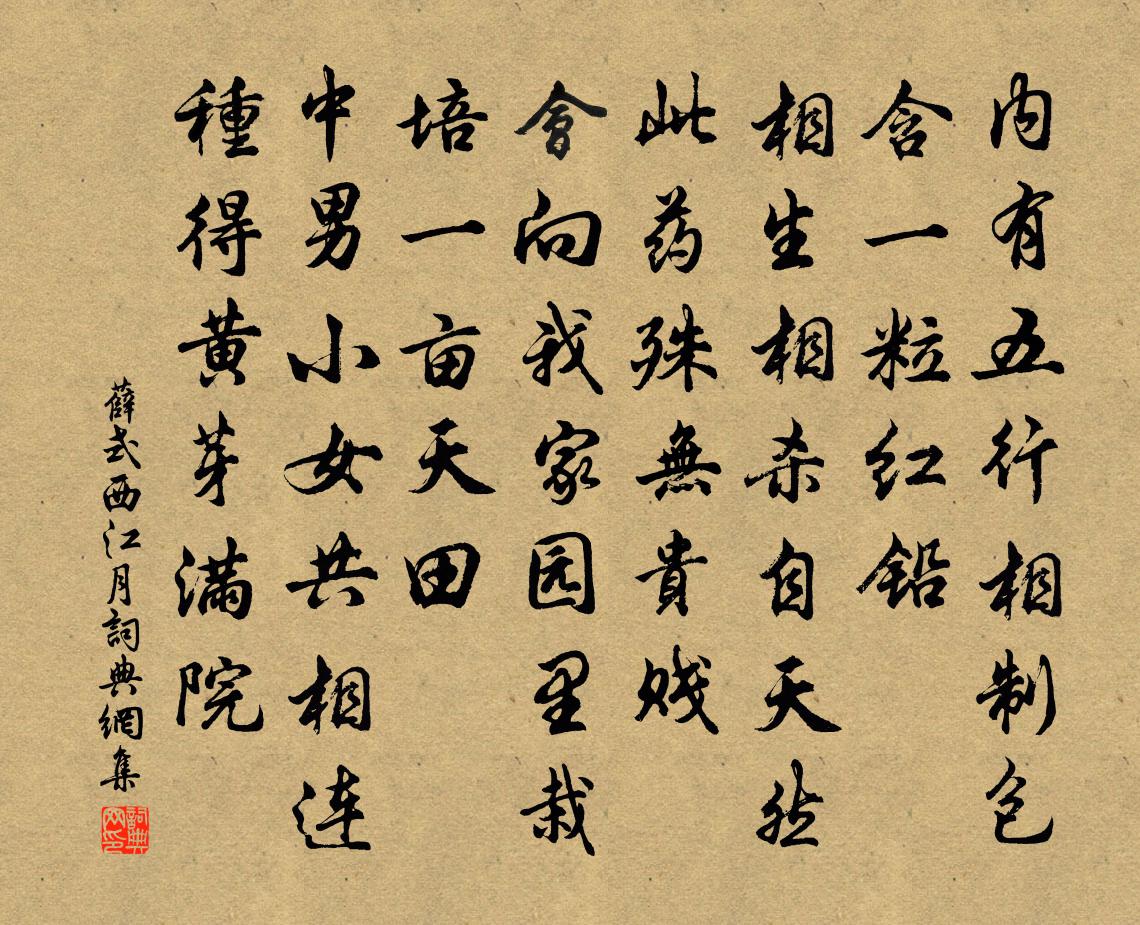 内有五行相制包
含一粒红铅
相生相相杀自天然
此药殊無貴贱
會向我家园里栽
培一亩天田
中男小女共相连
種得黄芽满院
薛式西江月詞典網集
詞典网印